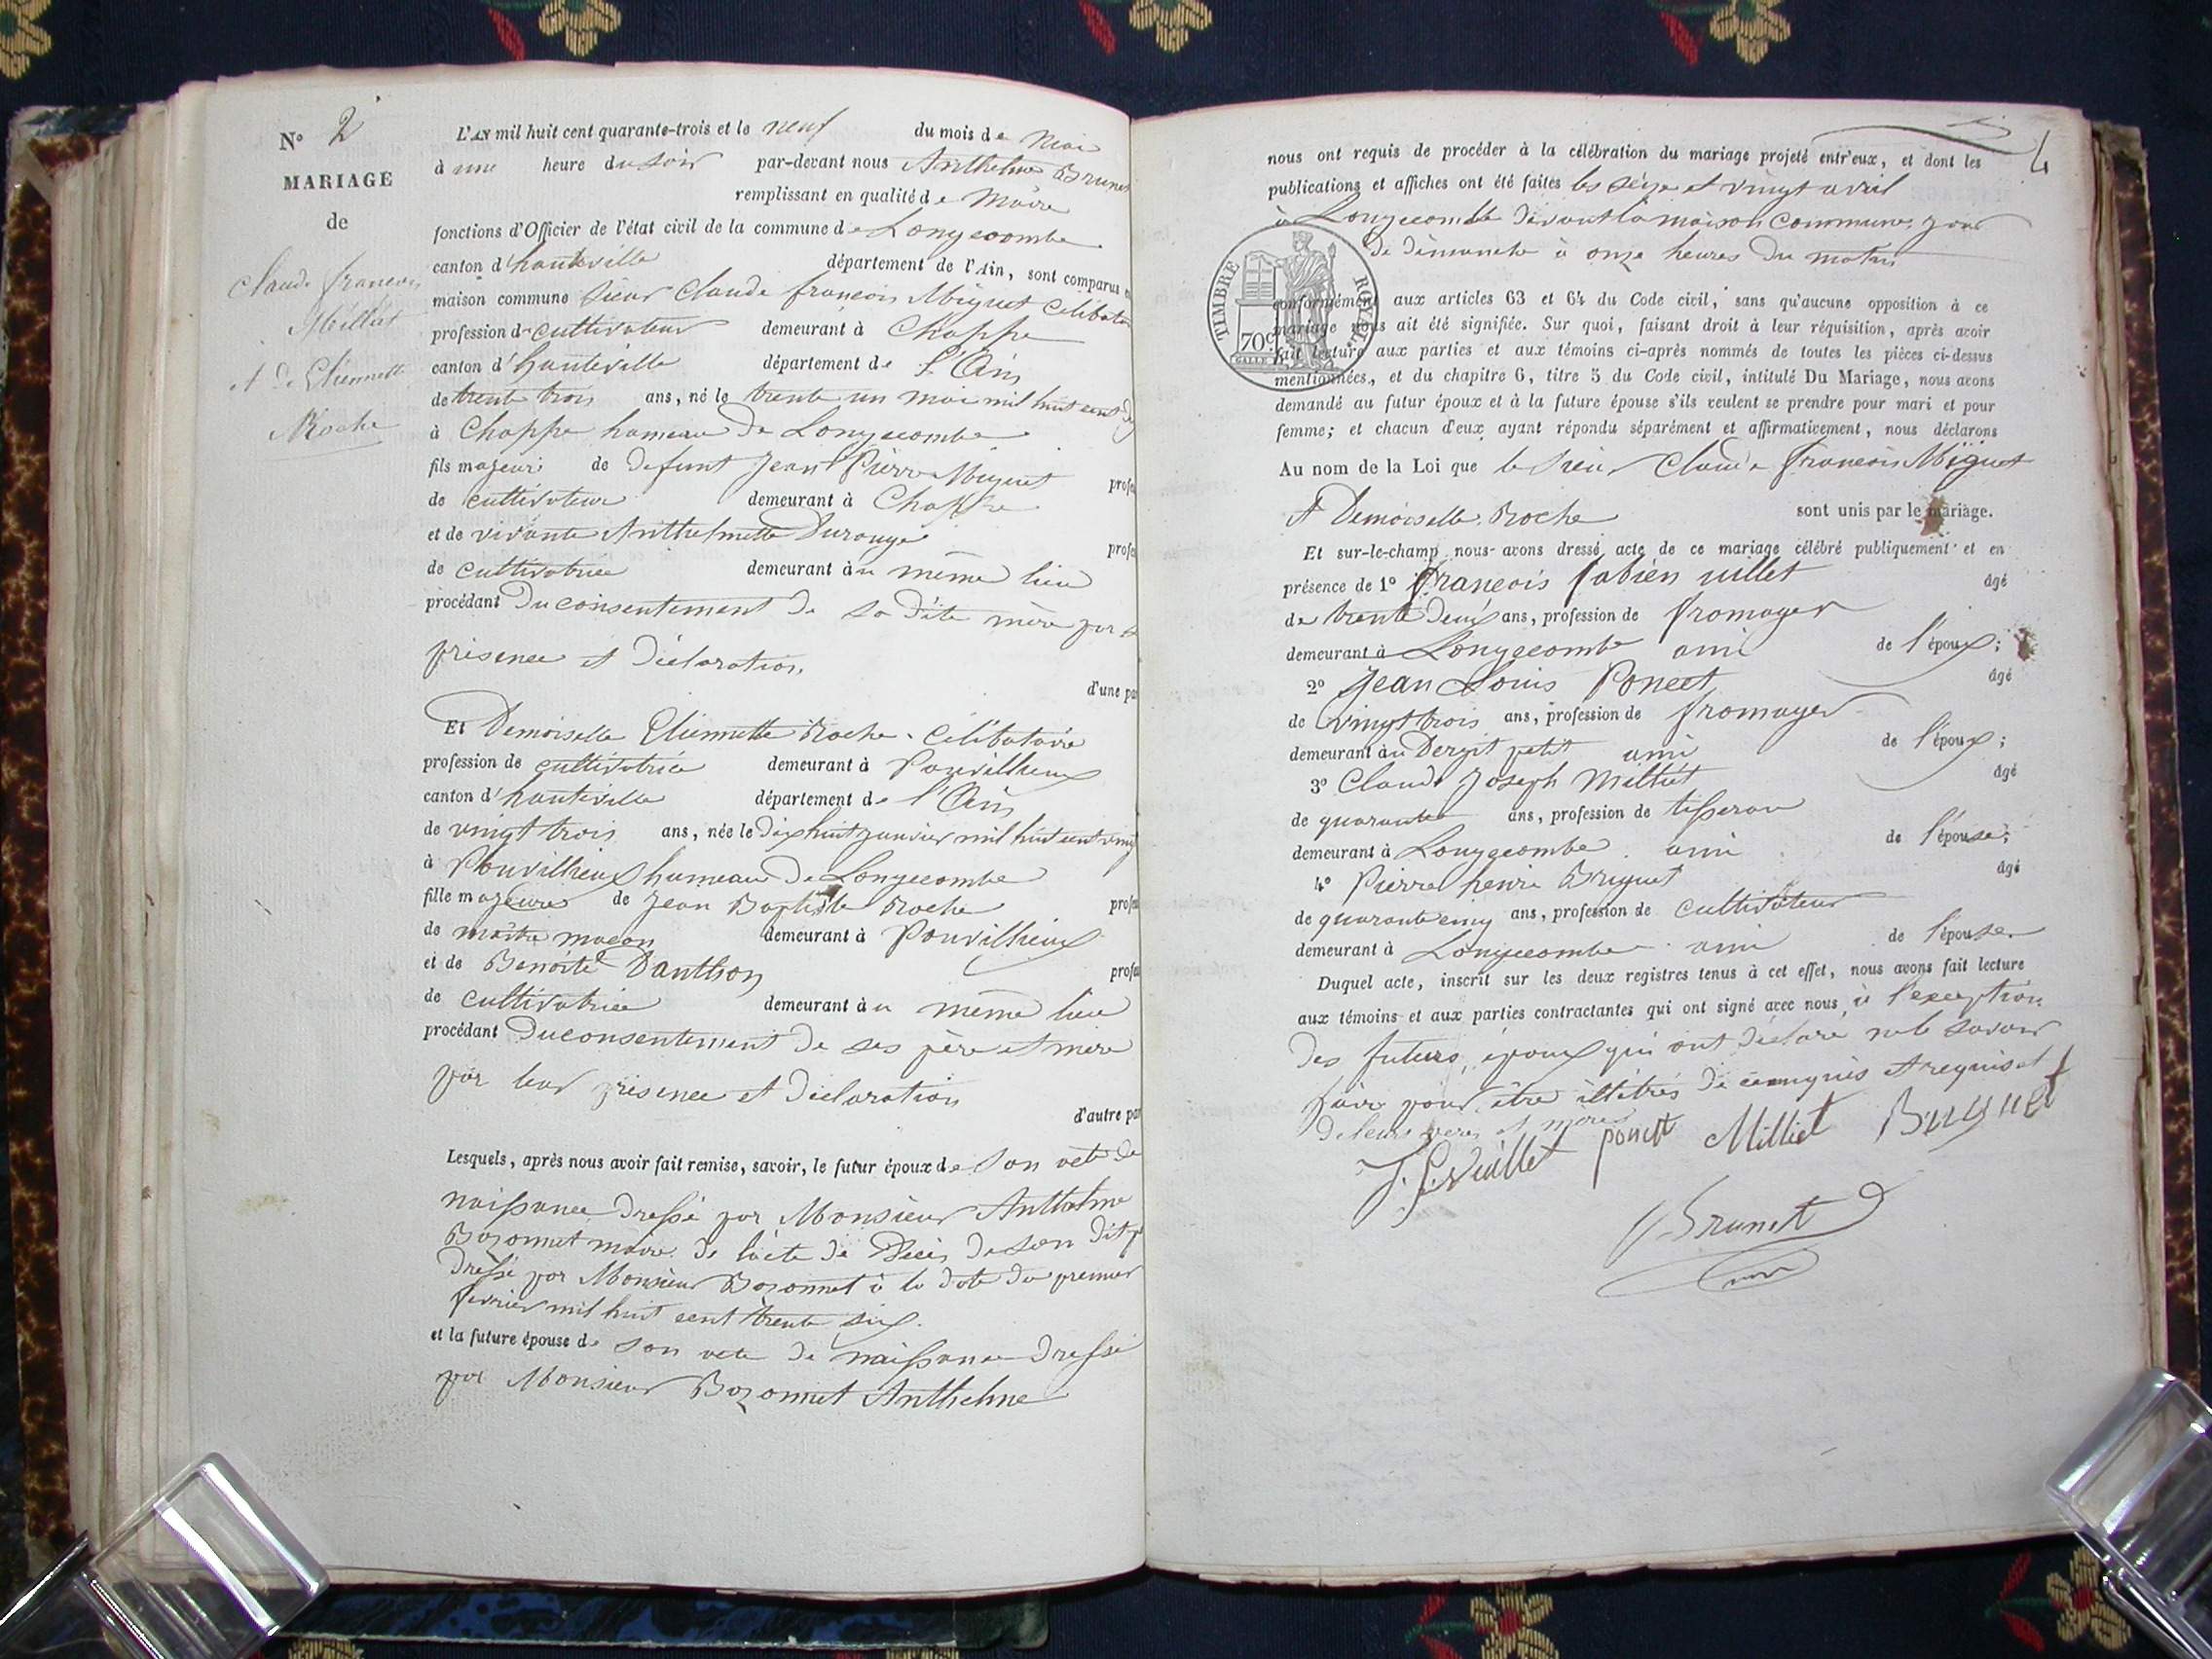 N° 2
MARIAGE
de
Claude françois
Milliet
et de Etiennette
Roche
L'AN mil huit cent quarante-trois et le neuf du mois de Mai
à une heure du soir par-devant nous Anthelme Brunet
remplissant en qualité de Maire
fonctions d'Officier de l'état civil de la commune de Longecombe
canton d'hauteville département de l'Ain, sont comparus en
maison commune Sieur Claude françois Miguet Celibataire
profession de cultivateur demeurant à Chappe
canton d'hauteville département de l'Ain
de trente trois ans, né le trente un mai mil huit cent dix
à Chappe hameau de Longecombe
fils majeur de defunt Jean Pierre Miguet profes
de cultivateur demeurant à Chappe
et de vivante Anthelmette profes
de cultivatrice demeurant au même lieu
procédant du consentement de sa dite mère par sa
présence et déclaration
d'une par
Et Demoiselle Etiennette Roche Célibataire
profession de cultivatrice demeurant à Pouvillieux
canton d'hauteville département de l'Ain
de vingt trois ans, née le dix huit janvier mil huit cent vingt
à Pouvillieux hameau de Longecombe
fille majeure de Jean Baptiste Roche profes
de maître maçon demeurant à Pouvillieux
et de Benoite Danthon profes
de cultivatrice demeurant au même lieu
procédant du consentement de ses père et mère
par leur présence et déclaration
d'autre par
Lesquels, après nous avoir fait remise, savoir, le futur époux de son acte de
naissance dressé par Monsieur Anthelme
Bozonnet maire de l'acte de décès de son dit p
dressé par Monsieur Bozonnet à la date du premier
fevrier mil huit cent trente six.
et la future épouse de son acte de naissance dressé
par Monsieur Bozonnet Anthelme
4
nous ont requis de procéder à la célébration du mariage projeté entr'eux, et dont les
publications et affiches ont été faites les seize et vingt avril
à Longecombe devant la maison commune, jour
de dimanche à onze heures du matin
TIMBRE ROYAL
70c
conformément aux articles 63 et 64 du Code civil, sans qu'aucune opposition à ce
mariage nous ait été signifiée. Sur quoi, faisant droit à leur réquisition, après avoir
fait lecture aux parties et aux témoins ci-après nommés de toutes les pièces ci-dessus
mentionnées, et du chapitre 6, titre 5 du Code civil, intitulé Du Mariage, nous avons
demandé au futur époux et à la future épouse s'ils veulent se prendre pour mari et pour
femme; et chacun d'eux ayant répondu séparément et affirmativement, nous déclarons
Au nom de la Loi que le Sieur Claude françois Miguet
et Demoiselle Roche sont unis par le mariage.
Et sur-le-champ nous avons dressé acte de ce mariage célébré publiquement et en
présence de 1° françois fabien vuillet âgé
de trente deux ans, profession de fromager
demeurant à Longecombe ami de l'époux;
2° Jean Louis Poncet âgé
de vingt trois ans, profession de fromager
demeurant au petit ami de l'époux;
3° Claude Joseph Milliet âgé
de quarante ans, profession de tisseran
demeurant à Longecombe ami de l'épouse;
4° Pierre henri Briguet âgé
de quarante cinq ans, profession de cultivateur
demeurant à Longecombe ami de l'épouse.
Duquel acte, inscrit sur les deux registres tenus à cet effet, nous avons fait lecture
aux témoins et aux parties contractantes qui ont signé avec nous, à l'exception
des futurs époux qui ont déclaré ne le savoir
faire pour être illétrés de ce enquis et requis et
de leurs peres et meres
vuillet poncet Milliet Briguet
Brunet